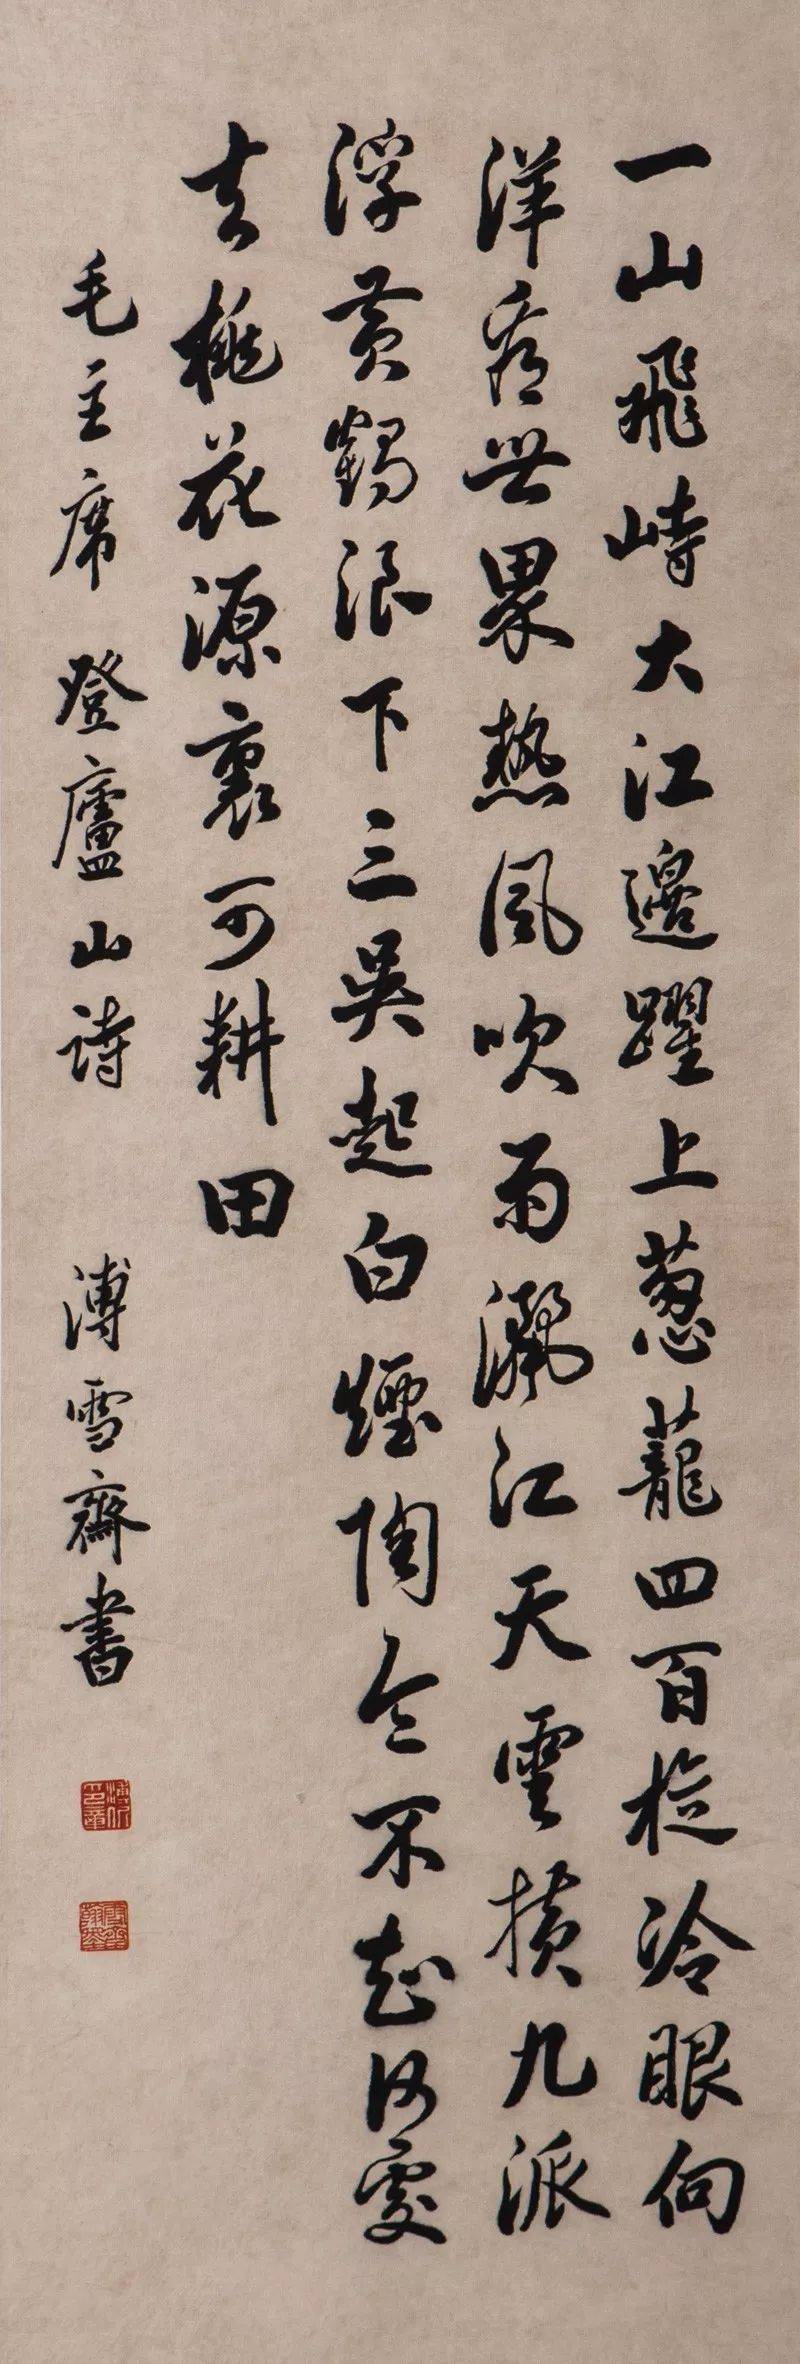 一山飛峙大江邊躍上葱蘢四百旋冷眼向
洋看世界熱風吹雨灑江天雲横九派
浮黄鶴浪下三吳起白煙陶令不知何處
去桃花源裏可耕田
毛主席登廬山詩 溥雪齋書
溥伒印章